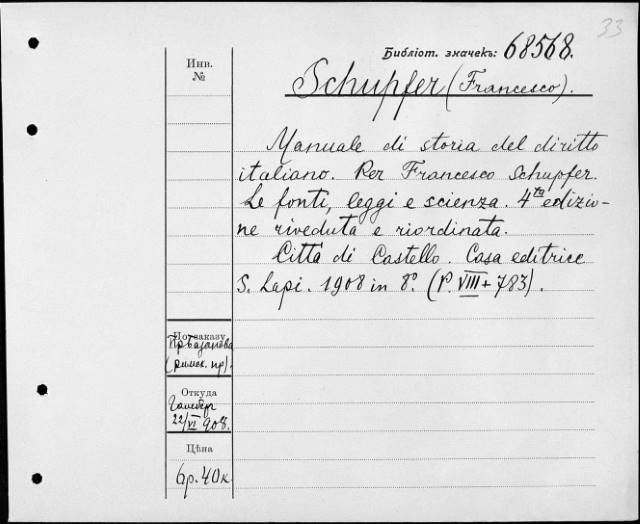 33
Библіот. значекъ: 68568.
Инв.
№
Schupfer (Francesco).
Manuale di storia del diritto
italiano. Per Francesco Schupfer.
Le fonti, leggi e scienza. 4ta edizio-
ne riveduta e riordinata.
Città di Castello. Casa editrice
S. Lapi. 1908 in 8º. (P. VIII + 783).
По заказу
пр.
(римск. пр).
Откуда
22/VI 908.
Цѣна
6р. 40к